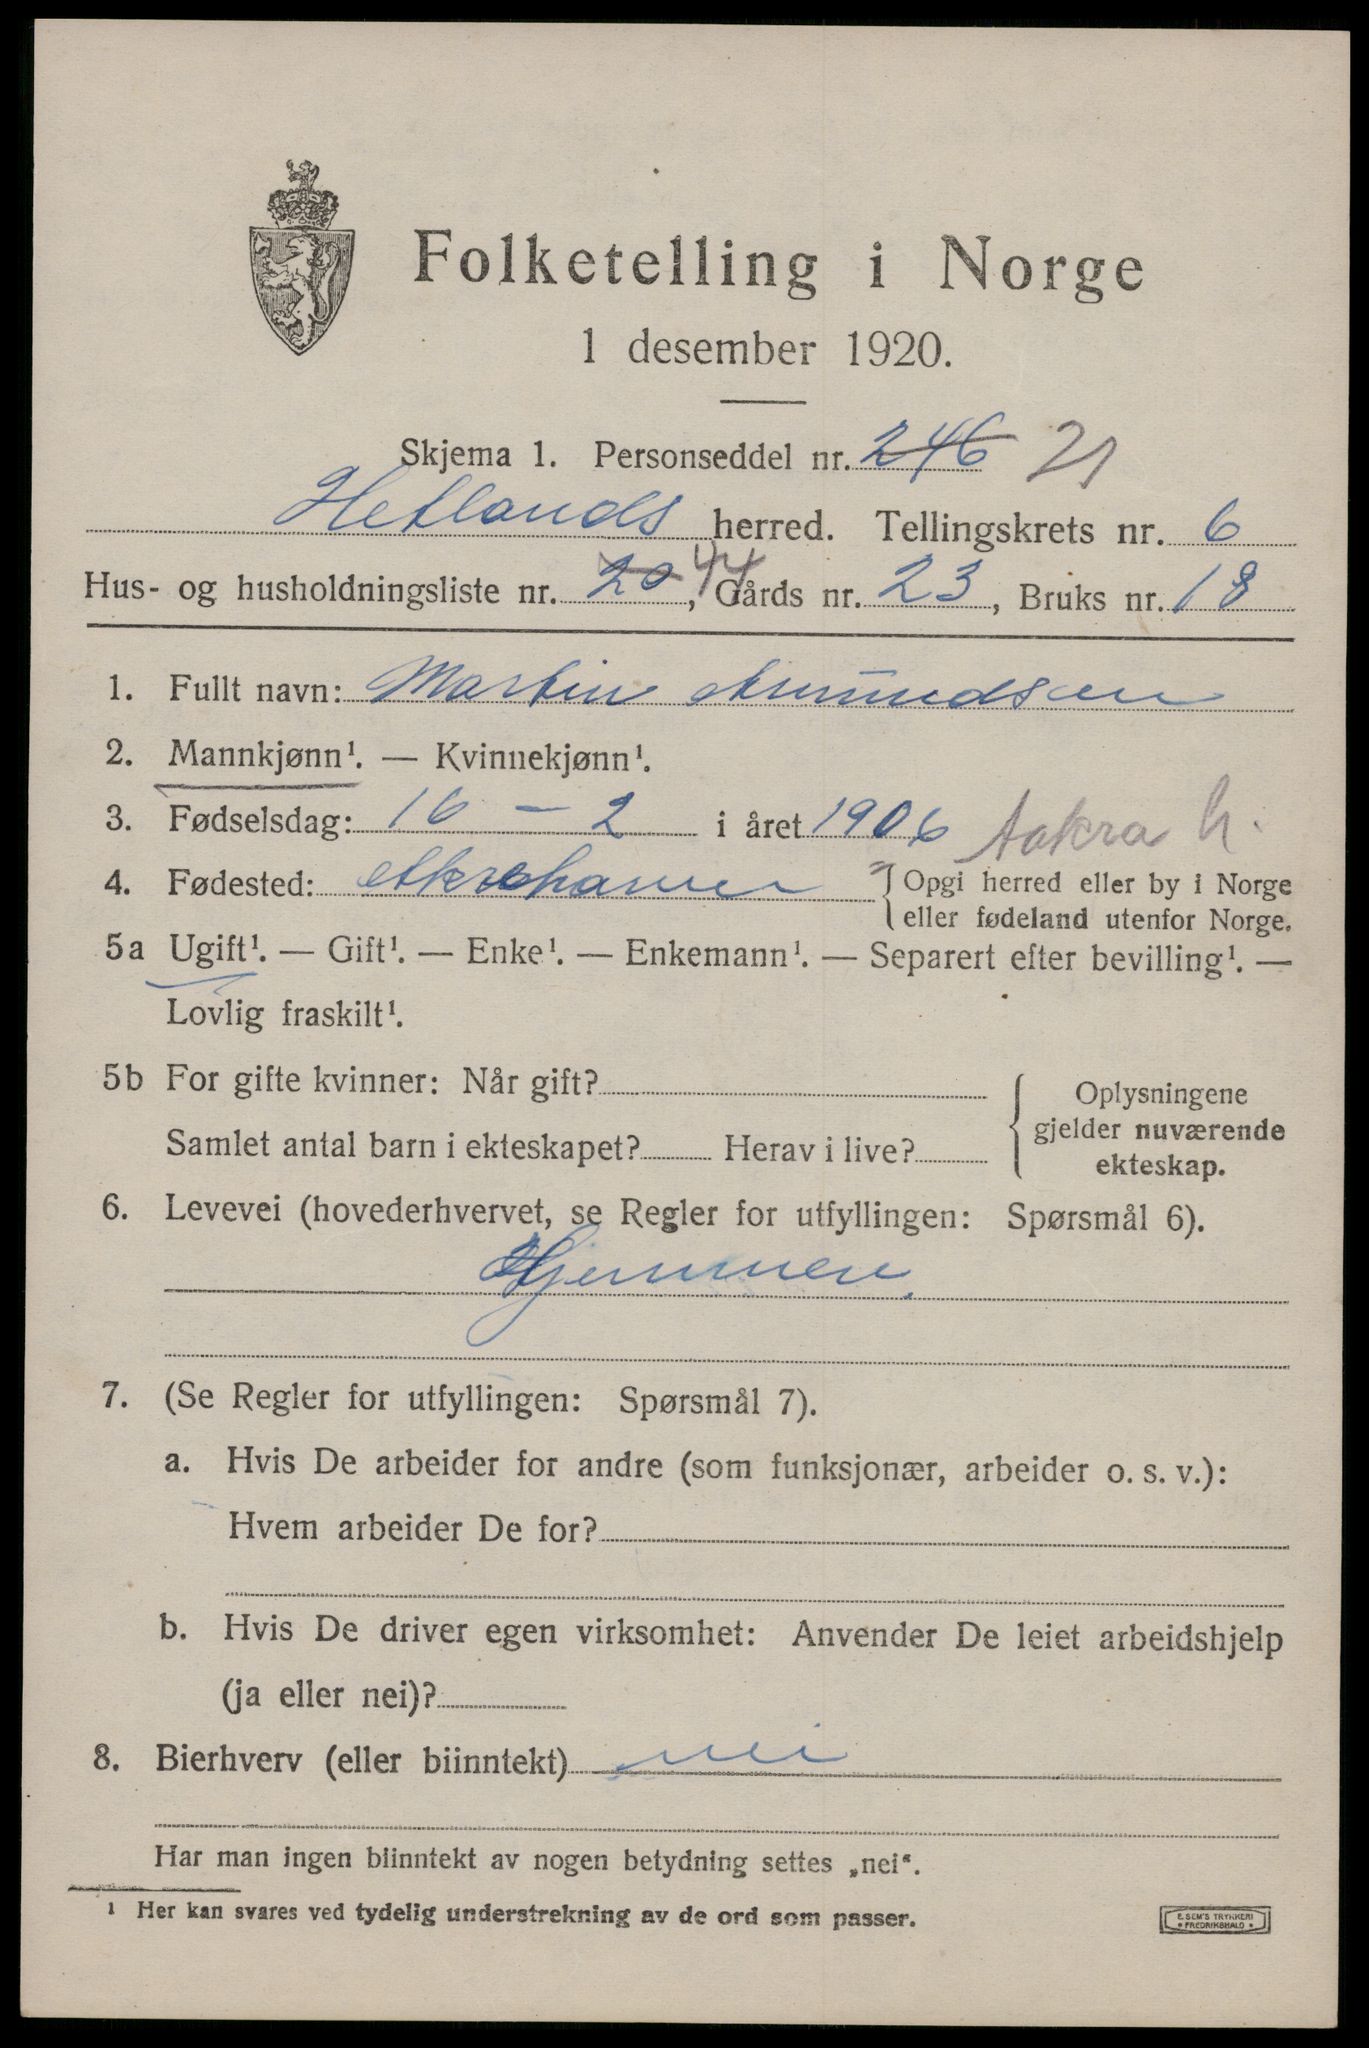 Folketelling i Norge
1 desember 1920.
Skjema 1. Personseddel nr. 246 21
Hetlands herred. Tellingskrets nr. 6
Hus- og husholdningsliste nr. 20 44, Gårds nr. 23, Bruks nr. 18
1. Fullt navn: Martin Amundsen
2. Mannkjønn¹. — Kvinnekjønn¹.
3. Fødselsdag: 16 - 2 i året 1906 Aakra h.
4. Fødested: Akrehamn { Opgi herred eller by i Norge
eller fødeland utenfor Norge.
5a Ugift¹. — Gift¹. — Enke¹. — Enkemann¹. — Separert efter bevilling¹. —
Lovlig fraskilt¹.
5b For gifte kvinner: Når gift?
Samlet antal barn i ekteskapet? Herav i live?
Oplysningene
gjelder nuværende
ekteskap.
6. Levevei (hovederhvervet, se Regler for utfyllingen: Spørsmål 6).
Hjemmen.
7. (Se Regler for utfyllingen: Spørsmål 7).
a. Hvis De arbeider for andre (som funksjonær, arbeider o. s. v.):
Hvem arbeider De for?
b. Hvis De driver egen virksomhet: Anvender De leiet arbeidshjelp
(ja eller nei)?
8. Bierhverv (eller biinntekt) nei
Har man ingen biinntekt av nogen betydning settes „nei“.
¹ Her kan svares ved tydelig understrekning av de ord som passer.
E. SEM'S TRYKKERI
* FREDRIKSHALD *